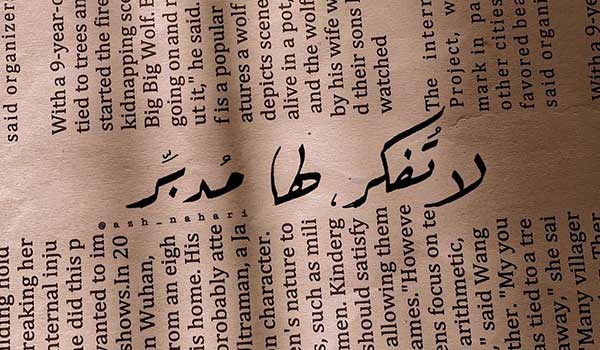 لا تُفكر، لها مُدبِّر
@ash_nahari
said organizer
With a 9-year-o
tied to trees an
started the fire
kidnapping sce
Big Big Wolf.
going on and r
ut it," he said
f is a popular
atures a wolf
depicts scene
alive in a pot,
and the wolf
by his wife w
d their sons
watched
The interr
Project, w
mark in pa
other cities
favored bea
said organi
With a 9-ye
hold
reaking her
ternal inju
he did this p
wanted to im
shows.In 20
n Wuhan,
om an eigh
s home. His
probably atte
Ultraman, a Ja
n character.
en's nature to
s, such as mili
men. Kinderg
should satisfy
allowing them
ames. "Howeve
ens focus on te
arithmetic,
" said Wang
ther. "My you
as tied to a tre
away," she sai
Many villager